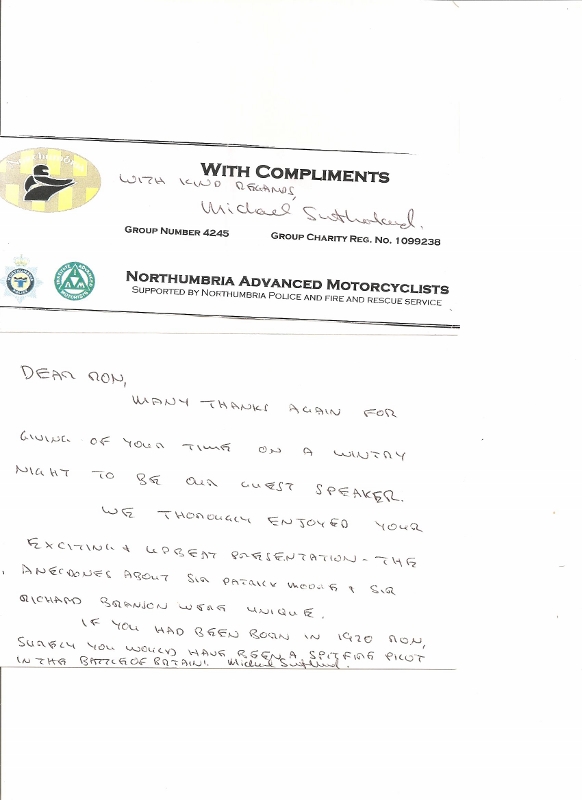 Northumbria
WITH COMPLIMENTS
WITH KIND REGARDS,
Michael Sutherland.
GROUP NUMBER 4245 GROUP CHARITY REG. NO. 1099238
NORTHUMBRIA ADVANCED MOTORCYCLISTS
SUPPORTED BY NORTHUMBRIA POLICE AND FIRE AND RESCUE SERVICE
DEAR RON,
MANY THANKS AGAIN FOR
GIVING OF YOUR TIME ON A WINTRY
NIGHT TO BE OUR GUEST SPEAKER.
WE THOROUGLY ENJOYED YOUR
EXCITING & UPBEAT PRESENTATION - THE
ANECDONES ABOUT SIR PATRICK MOORE & SIR
RICHARD BRANSON WERE UNIQUE.
IF YOU HAD BEEN BORN IN 1920 RON,
SURELY YOU WOULD HAVE BEEN A SPITFIRE PILOT
IN THE BATTLE OF BRITAIN! Michael Sutherland.